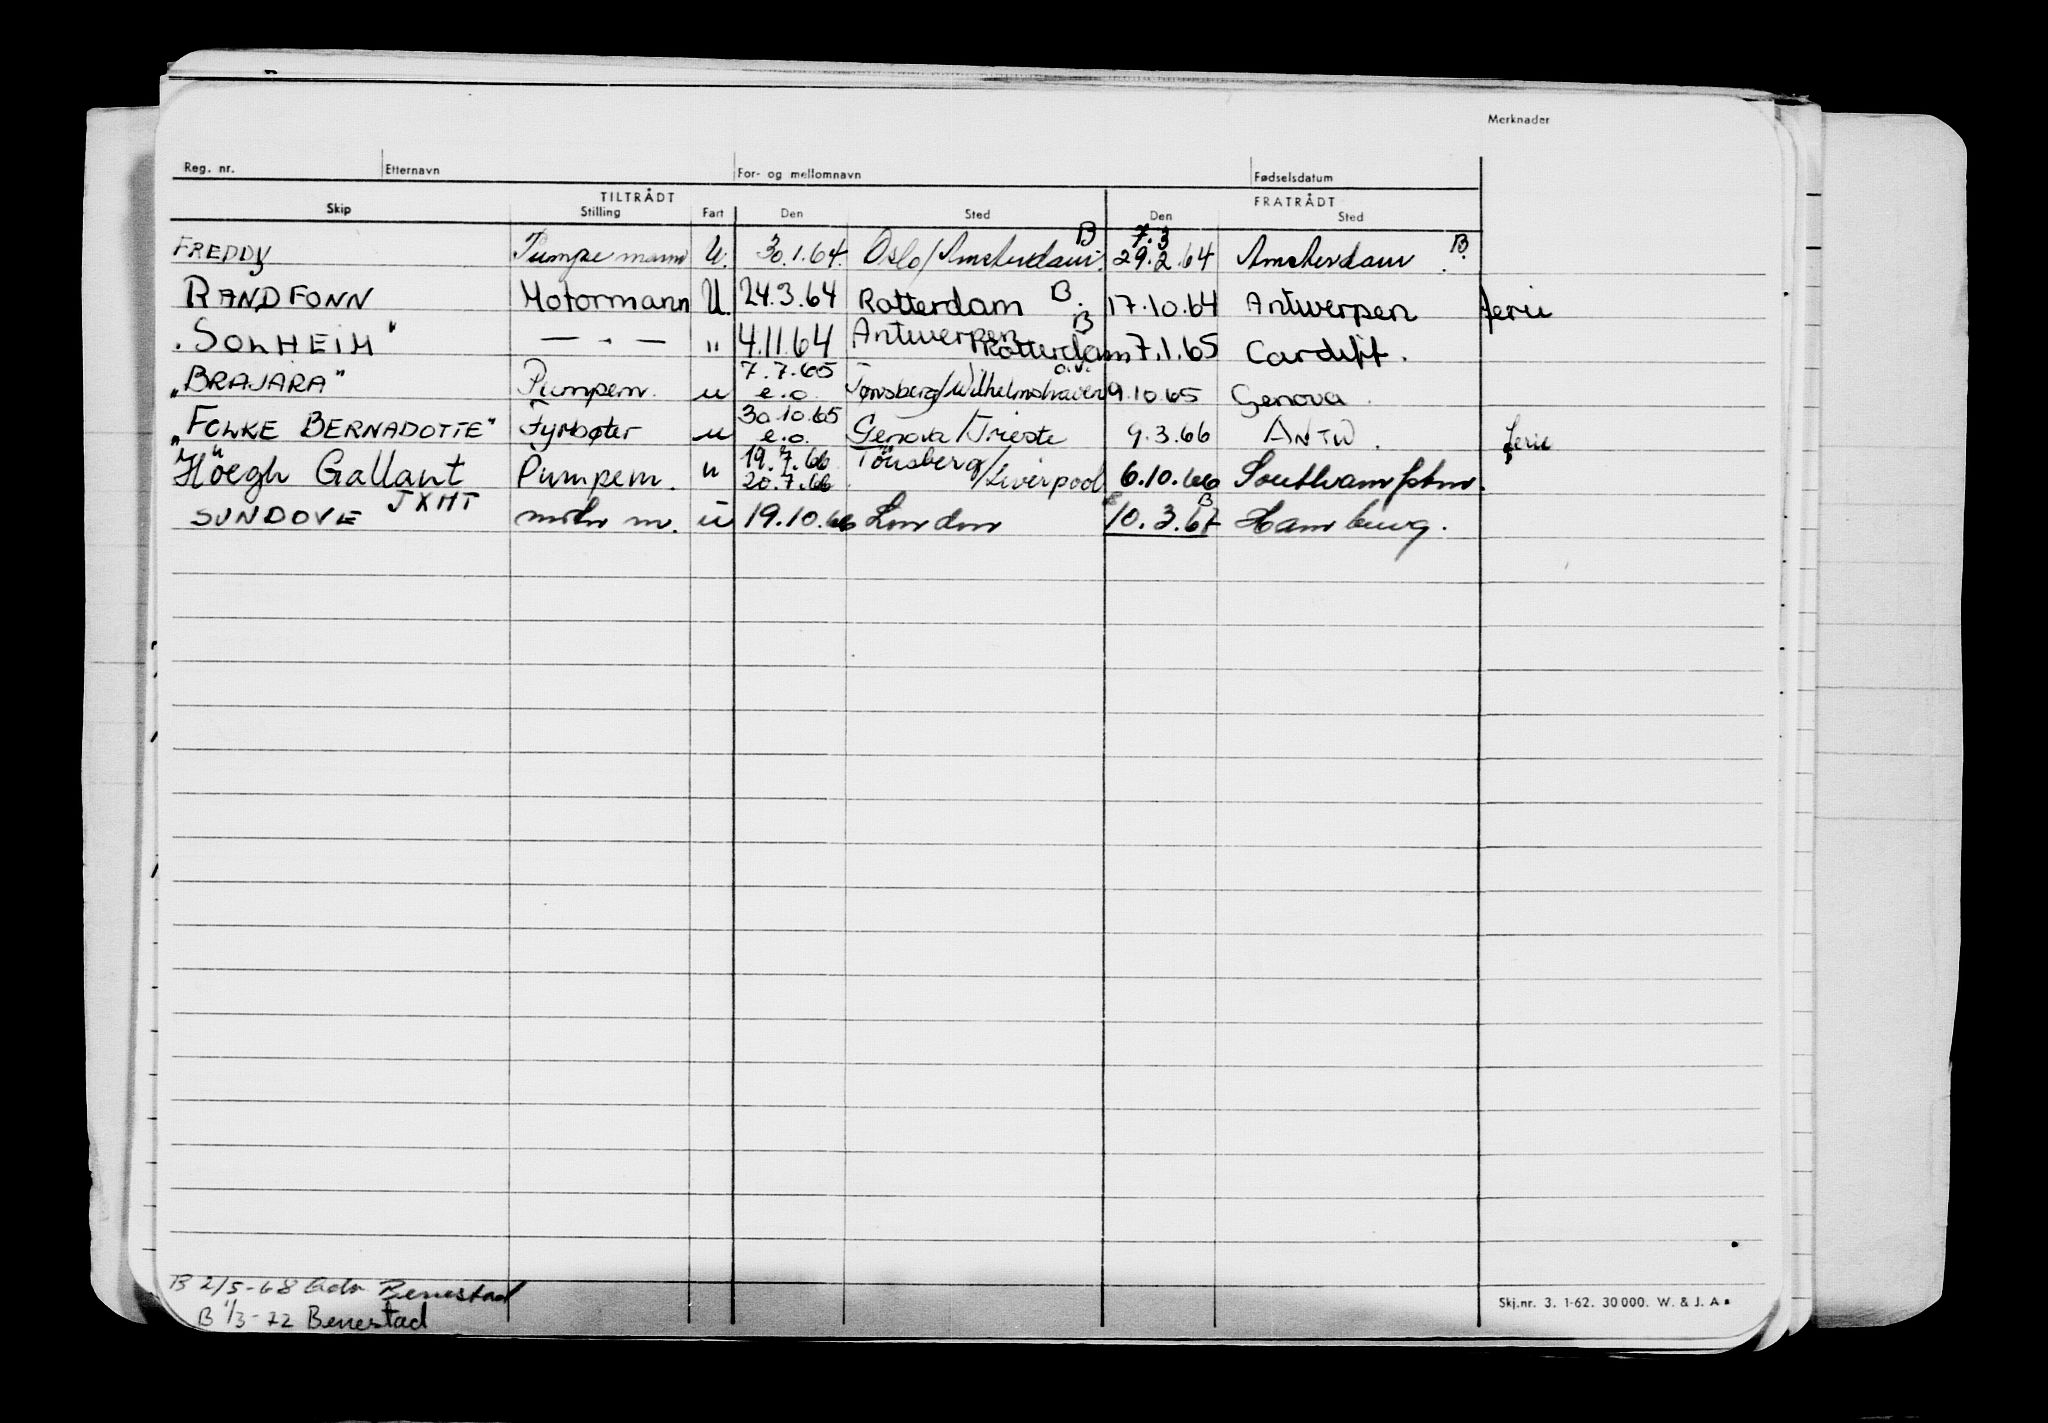 Merknader
Reg. nr. Etternavn For- og mellomnavn Fødselsdatum
TILTRÅDT FRATRÅDT
Skip Stilling Fart Den Sted Den Sted
FREDDY Pumpemann U. 30.1.64. Oslo/Amsterdam. B 7.3 29.2.64 Amsterdam B.
RANDFONN Motormann U. 24.3.64 Rotterdam B. 17.10.64 Antwerpen ferie
"SOLHEIM" — . — " 4.11.64 Antwerpen Rotterdam B 7.1.65 Cardiff.
"BRAJARA" Pumpem. u 7.7.65 e.o. Tønsberg/Wilhelmshaven 9.10.65 Genova.
"FOLKE BERNADOTTE" Fyrbøter u 30.10.65 e.o. Genova/Trieste 9.3.66 ANTW. ferie
Höegh Gallant Pumpem. u 19.7.66 20.7.66 Tönsberg/Liverpool 6.10.66 Southampton.
SUNDOVE JXMT motor m. u 19.10.66 London 10.3.67 B Hamburg.
B 2/5-68 Benestad
B 1/3-72 Benestad
Skj.nr. 3. 1-62. 30000. W. & J. A